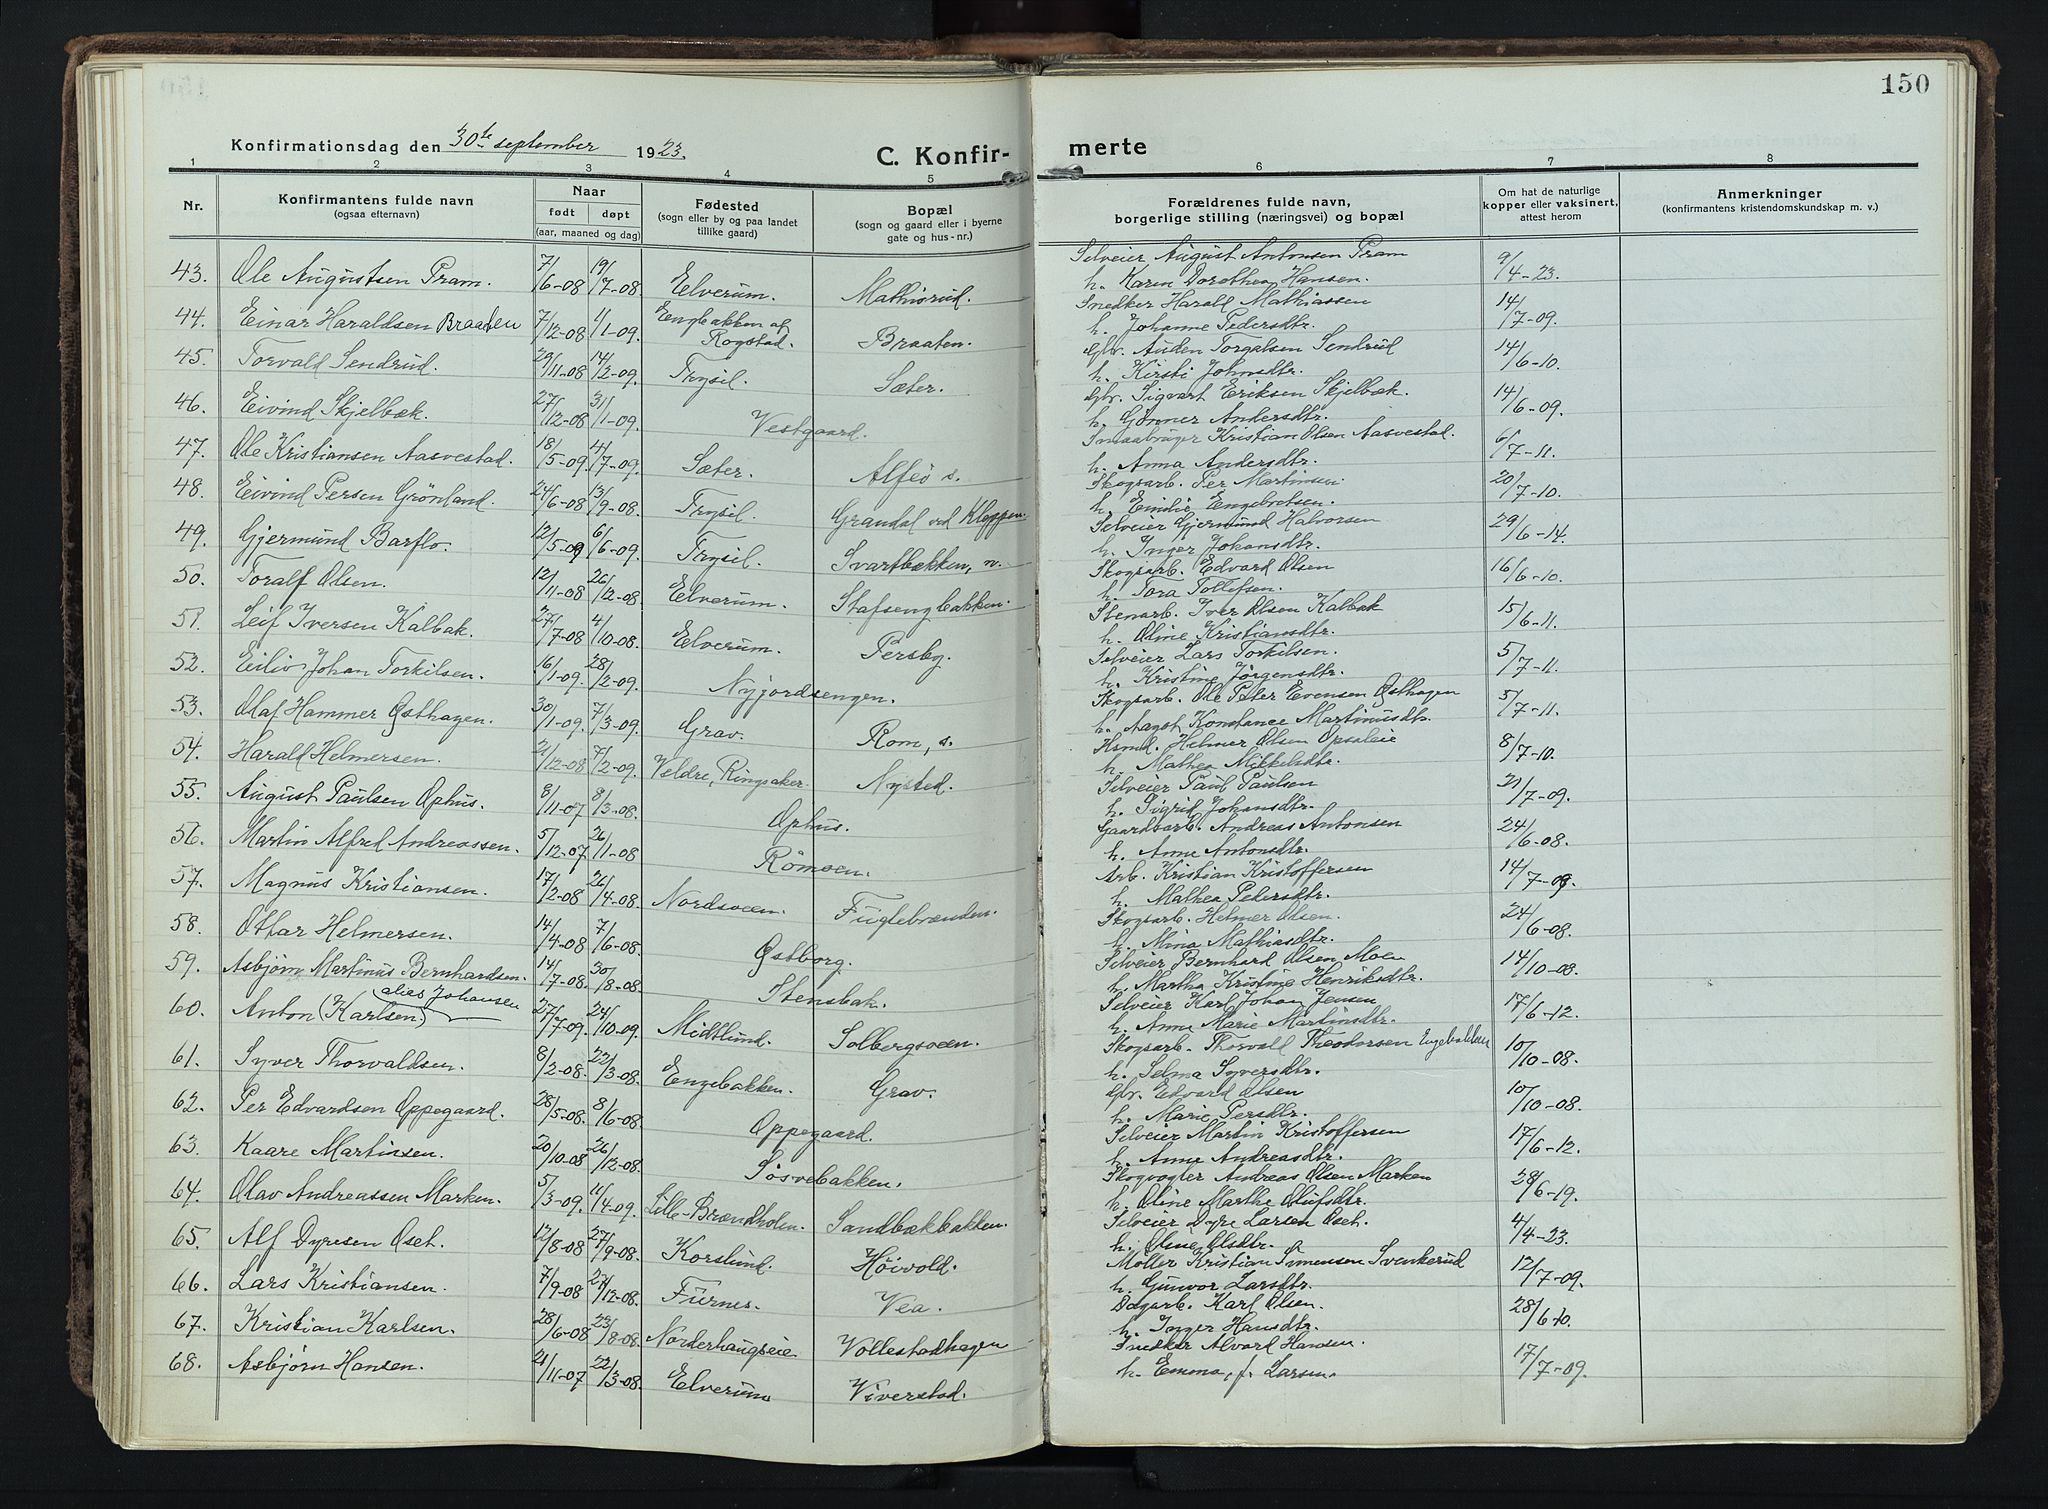 150
Konfirmationsdag den 30te september 1923.
C. Konfirmerte
1 2 3 4 5 6 7 8
Nr. | Konfirmantens fulde navn (ogsaa efternavn) | Naar født døpt (aar, maaned og dag) | Fødested (sogn eller by og paa landet tillike gaard) | Bopæl (sogn og gaard eller i byerne gate og hus-nr.) | Forældrenes fulde navn, borgerlige stilling (næringsvei) og bopæl | Om hat de naturlige kopper eller vaksinert, attest herom | Anmerkninger (konfirmantens kristendomskundskap m. v.)
43. Ole Augustsen Pram. 7/6-08 19/7-08. Elverum. Mathisrud. Selveier August Antonsen Pram
h. Karen Dorothea Hansen. 9/4-23.
44. Einar Haraldsen Braaten 7/12-08 1/1-09. Engbakken af Rogstad. Braaten. Snedker Harald Mathiassen
h. Johanne Pedersdtr. 14/7-09.
45. Torvald Sendrud. 29/11-08 14/2-09. Trysil. Sæter. Gbr. Auden Torgalsen Sendrud
h. Kirsti Johnsdtr. 14/6-10.
46. Eivind Skjelbæk. 27/12-08 31/1-09. Vestgaard. Gbr. Sigvart Eriksen Skjelbæk.
h. Gønner Andersdtr. 14/6-09.
47. Ole Kristiansen Aasvestad. 18/5-09 4/7-09. Sæter. Alfeö s. Smaabruger Kristian Olsen Aasvestad.
h. Anna Andersdtr. 6/7-11.
48. Eivind Persen Grönland. 24/6-08 13/9-08. Trysil. Grandal ved Kleppen. Skogsarb. Per Martinsen.
h. Emilie Engebretsen. 20/7-10.
49. Gjermund Barflo. 12/5-09 6/6-09. Trysil. Svartbækken, n. Selveier Gjermund Halvorsen
h. Inger Johansdtr. 29/6-14.
50. Toralf Olsen. 12/11-08 26/12-08. Elverum. Stafsengbakken. Skogsarb. Edvard Olsen
h. Tora Tollefsen. 16/6-10.
51. Leif Iversen Kalbak. 27/7-08 4/10-08. Elverum. Persby. Stenarb. Iver Olsen Kalbak
h. Oline Kristiansdtr. 15/6-11.
52. Eiliv Johan Torkilsen. 16/1-09. 28/2-09. Nyjordsengen. Selveier Lars Torkilsen.
h. Kristine Jörgensdtr. 5/7-11.
53. Olaf Hammer Østhagen. 30/1-09. 7/3-09. Grav. Rom, s. Skogsarb. Ole Peter Evensen Østhagen
h. Aagot Konstance Martinusdtr. 5/7-11.
54. Harald Helmersen. 21/12-08 7/2-09. Veldre, Ringsaker. Nysted. Hsmd. Helmer Olsen Opsaleie
h. Mathea Mikkelsdtr. 8/7-10.
55. August Paulsen Ophus. 8/11-07 8/3-08. Ophus. Selveier Paul Paulsen
h. Sigrid Johansdtr. 21/7-09.
56. Martin Alfred Andreassen. 5/12-07 26/1-08 Römoen. Gaardsarb. Andreas Antonsen
h. Anne Antonsdtr. 24/6-08.
57. Magnus Kristiansen. 17/2-08 26/4-08. Nordsveen. Fuglebrænden. Arb. Kristian Kristoffersen
h. Mathea Pedersdtr. 14/7-09.
58. Ottar Helmersen. 14/4-08 7/6-08. Østborg. Skogsarb. Helmer Olsen.
h. Mina Mathiasdtr. 24/6-08.
59. Asbjørn Martinus Bernhardsen. 14/7-08. 30/8-08. Stensbak. Selveier Bernhard Olsen Moen
h. Martha Kristine Henriksdtr. 14/10-08.
60. Anton (Karlsen) alias Johansen 27/7-09. 24/10-09. Midtlund. Solbergsveen. Selveier Karl Johan Jensen
h. Anne Marie Martinsdtr. 17/6-12.
61. Syver Thorvaldsen. 8/2-08. 22/3-08. Engebakken. Grav. Skogsarb. Thorvald Theodorsen Engebakken
h. Selma Syversdtr. 10/10-08.
62. Per Edvardsen Oppegaard. 28/5-08. 8/6-08. Oppegaard. Gbr. Edvard Olsen
h. Marie Persdtr. 10/10-08.
63. Kaare Martinsen. 20/10-08 26/12-08. Søsvebakken. Selveier Martin Kristoffersen
h. Anne Andreasdtr. 17/6-12.
64. Olav Andreassen Marken. 5/3-09. 11/4-09. Lille-Brændholen. Sandbækbakken. Skogvogter Andreas Olsen Marken
h. Oline Marthe Olufsdtr. 28/6-19.
65. Alf Dyresen Oset. 12/8-08 27/9-08. Korslund. Høivold. Selveier Dyre Larsen Oset.
h. Oline Olsdtr. 4/4-23.
66. Lars Kristiansen. 7/9-08 27/12-08. Furnes. Vea. Møller Kristian Simensen Svenkerud
h. Gunvor Larsdtr. 12/7-09.
67. Kristian Karlsen. 28/6-08 23/8-08. Norderhaugseie Vollestadhagen Dagarb. Karl Olsen.
h. Inger Hansdtr. 28/6-10.
68. Asbjørn Hansen. 21/11-07 22/3-08. Elverum Viverstad. Snedker Alvard Hansen.
h. Emma, f. Larsen. 17/7-09.